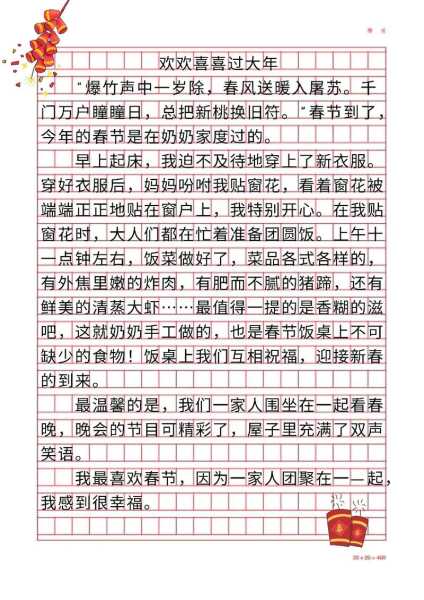 欢欢喜喜过大年
“爆竹声中一岁除，春风送暖入屠苏。千
门万户瞳瞳日，总把新桃换旧符。“春节到了，
今年的春节是在奶奶家度过的。
早上起床，我迫不及待地穿上了新衣服。
穿好衣服后，妈妈吩咐我贴窗花，看着窗花被
端端正正地贴在窗户上，我特别开心。在我贴
窗花时，大人们都在忙着准备团圆饭。上午十
一点钟左右，饭菜做好了，菜品各式各样的，
有外焦里嫩的炸肉，有肥而不腻的猪蹄，还有
鲜美的清蒸大虾……最值得一提的是香糊的滋
吧，这就奶奶手工做的，也是春节饭桌上不可
缺少的食物！饭桌上我们互相祝福，迎接新春
的到来。
最温馨的是，我们一家人围坐在一起看春
晚，晚会的节目可精彩了，屋子里充满了双声
笑语。
我最喜欢春节，因为一家人团聚在一—起，
我感到很幸福。